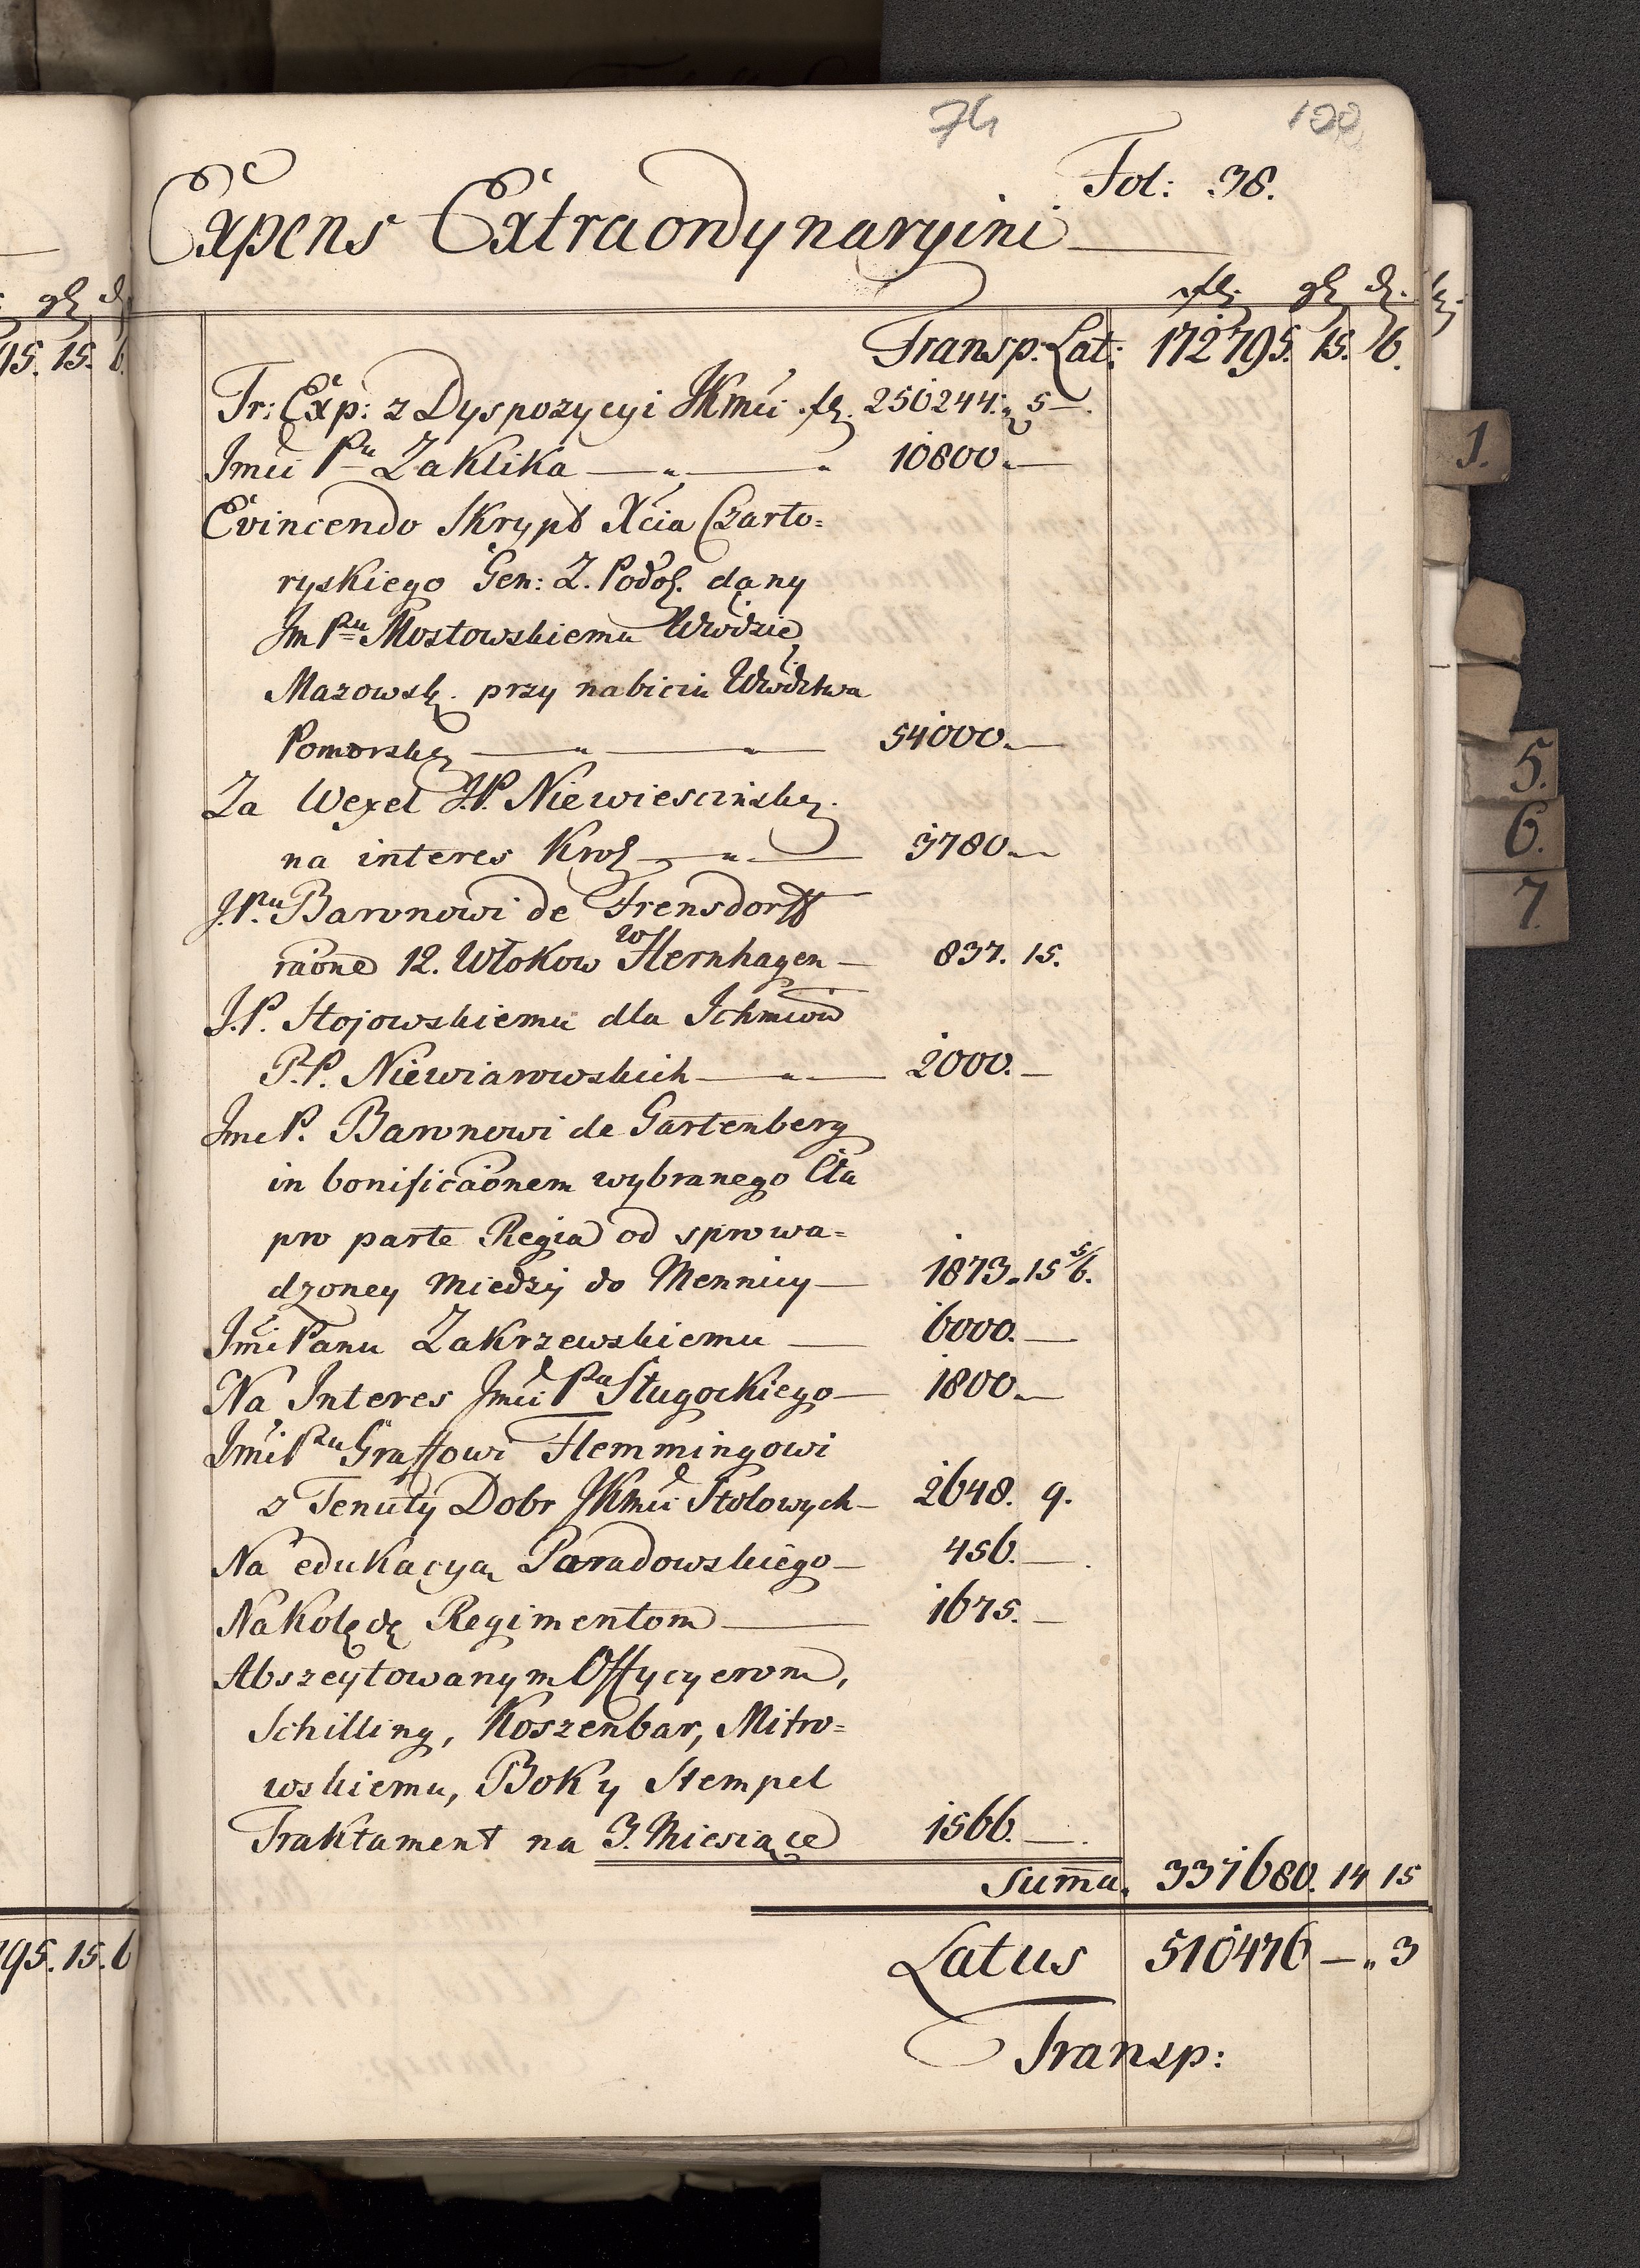 74 100
Fol: 38.
Expens Extraordynaryini
fl. gl. d.
Transp: Lat: 172795. 15. 6.
Tr: Exp: z Dyspozycyi JKmći fl. 250244. 5 —
Jmći Pu Zaklika — " — " 10800. —
Evincendo Skrypt Xcia Czarto=
ryskiego Gen: Z. Podol. dany
Jm Pnu Mostowskiemu Wwdzie
Mazowsk. przy nabiciu Wwdztwa
Pomorsk. — " — " 54000. —
Za Wexel J.P. Niewiescinsk.
na interes Krol — " — 3780. —
J.Pnu Baronowi de Frensdorff
raõne 12. Włokow w Sternhagen — 837. 15.
J.P. Stojowskiemu dla Ichmciow
P.P. Niewiarowskich — " — 2000. —
Jmc P. Baronowi de Gartenberg
in bonificaõnem wybranego Cła
pro parte Regia od sprowa=
dzoney miedzi do Mennicy — 1873. 15 5/6.
Jmci Panu Zakrzewskiemu — 6000. —
Na Interes Jmći Pa Sługockiego — 1800. —
Jmci Pnu Graffowi Flemmingowi
z Tenuty Dobr JKmći Stołowych — 2648. 9.
Na edukacyą Paradowskiego — 456. —
Na Kolędę Regimentom — 1675. —
Abszeytowanym Offycyerom,
Schilling, Koszenbar, Mitro=
wskiemu, Boky Stempel
Traktament na 3. Miesiące 1566. —
Sum̃a. 337680. 14 15
Latus 510476 — " 3
Transp:
15. 15. 6.
795. 15. 6
1.
5.
6.
7.